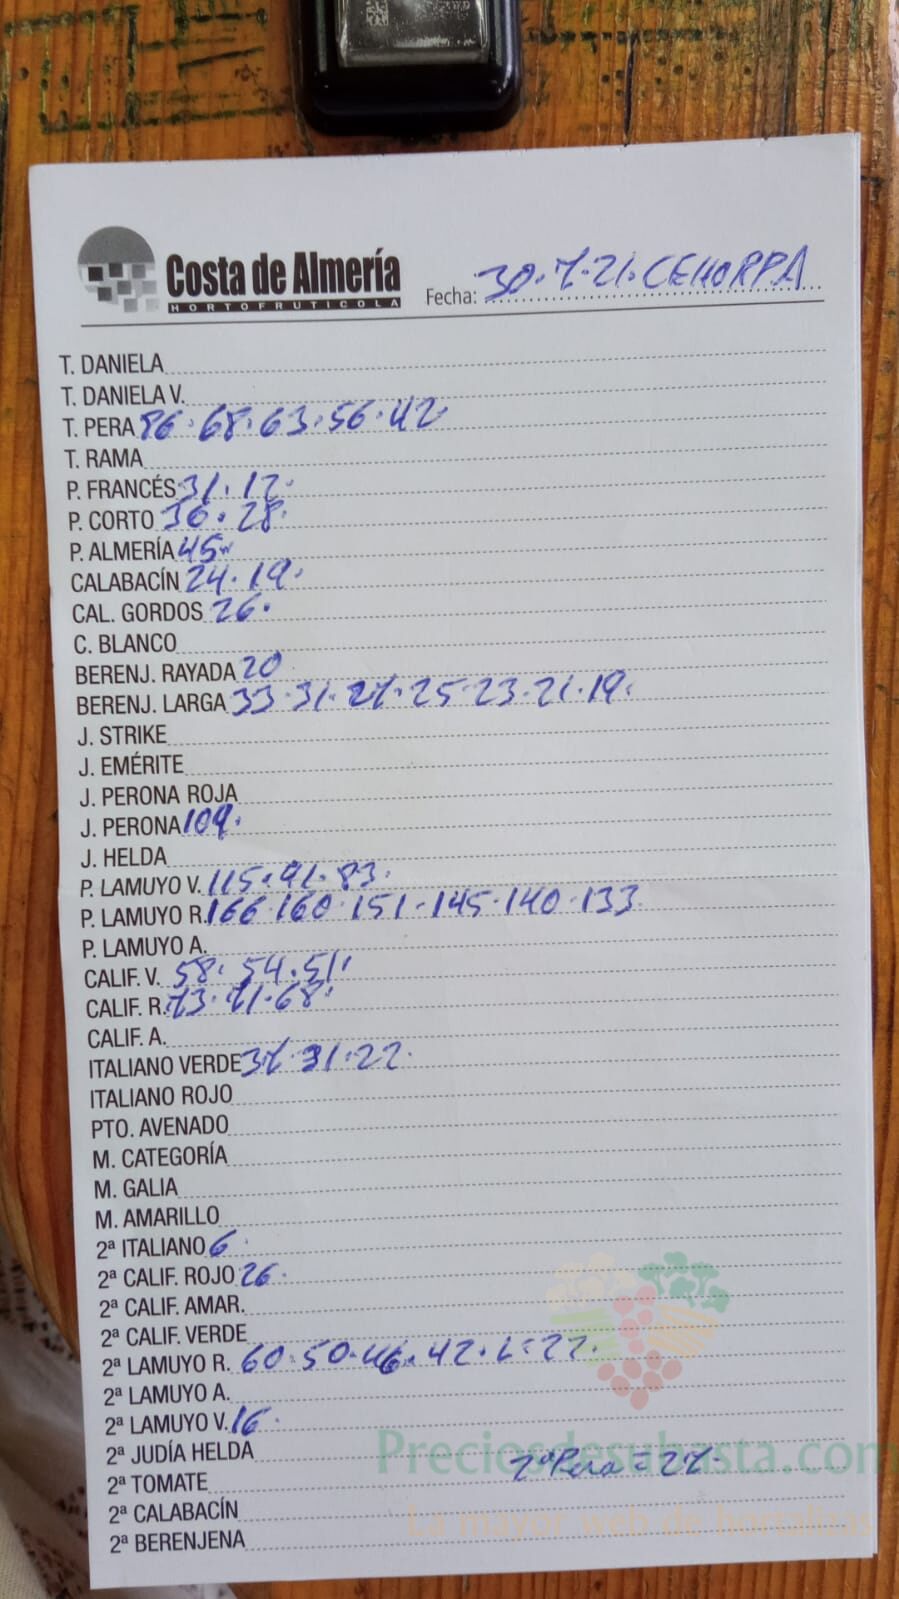 Costa de Almería
HORTOFRUTICOLA
Fecha: 30.7.21.CEHORPA
T. DANIELA
T. DANIELA V.
T. PERA 86.68.63.56.42
T. RAMA
P. FRANCÉS 31.12.
P. CORTO 36.28.
P. ALMERÍA 45
CALABACÍN 24.19.
CAL. GORDOS 26.
C. BLANCO
BERENJ. RAYADA 20
BERENJ. LARGA 33.31.27.25.23.21.19.
J. STRIKE
J. EMÉRITE
J. PERONA ROJA
J. PERONA 109.
J. HELDA
P. LAMUYO V. 115.91.83.
P. LAMUYO R. 166.160.151.145.140.133
P. LAMUYO A.
CALIF. V. 58.54.51.
CALIF. R. 73.71.68.
CALIF. A.
ITALIANO VERDE 37.31.22.
ITALIANO ROJO
PTO. AVENADO
M. CATEGORÍA
M. GALIA
M. AMARILLO
2ª ITALIANO 6.
2ª CALIF. ROJO 26.
2ª CALIF. AMAR.
2ª CALIF. VERDE
2ª LAMUYO R. 60.50.46.42.L=22.
2ª LAMUYO A.
2ª LAMUYO V. 16.
2ª JUDÍA HELDA
Preciosdesubasta.com
2ª TOMATE 2ª Pera = 27.
2ª CALABACÍN
La mayor web de hortalizas
2ª BERENJENA